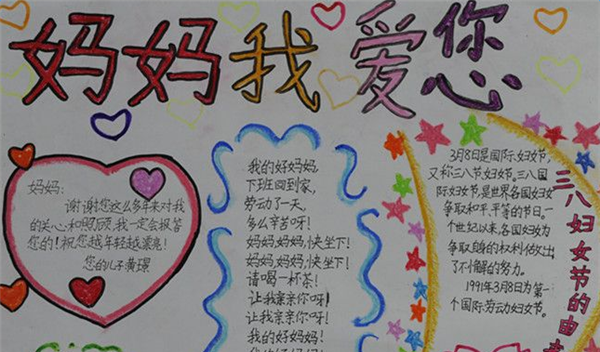 妈妈我爱您
妈妈:
谢谢您这么多年来对我
的关心和照顾,我一定会报答
您的!祝您越年轻越漂亮!
您的儿子黄璟
我的好妈妈,
下班回到家,
劳动了一天,
多么辛苦呀!
妈妈,妈妈,快坐下!
妈妈,妈妈,快坐下!
请喝一杯茶!
让我亲亲你呀!
让我亲亲你呀!
我的好妈妈!
3月8日是国际妇女节,
又称三八节,妇女节。三八国
际妇女节,是世界各国妇女
争取和平、平等的节日。一
个世纪以来,各国妇女为
争取自身的权利作出
了不懈的努力。
1991年3月8日为第一
个国际劳动妇女节。
三八妇女节的由